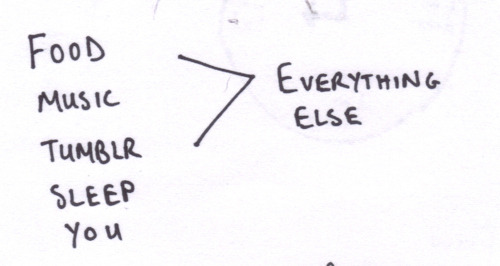 FOOD
MUSIC
TUMBLR
SLEEP
YOU
>
EVERYTHING
ELSE